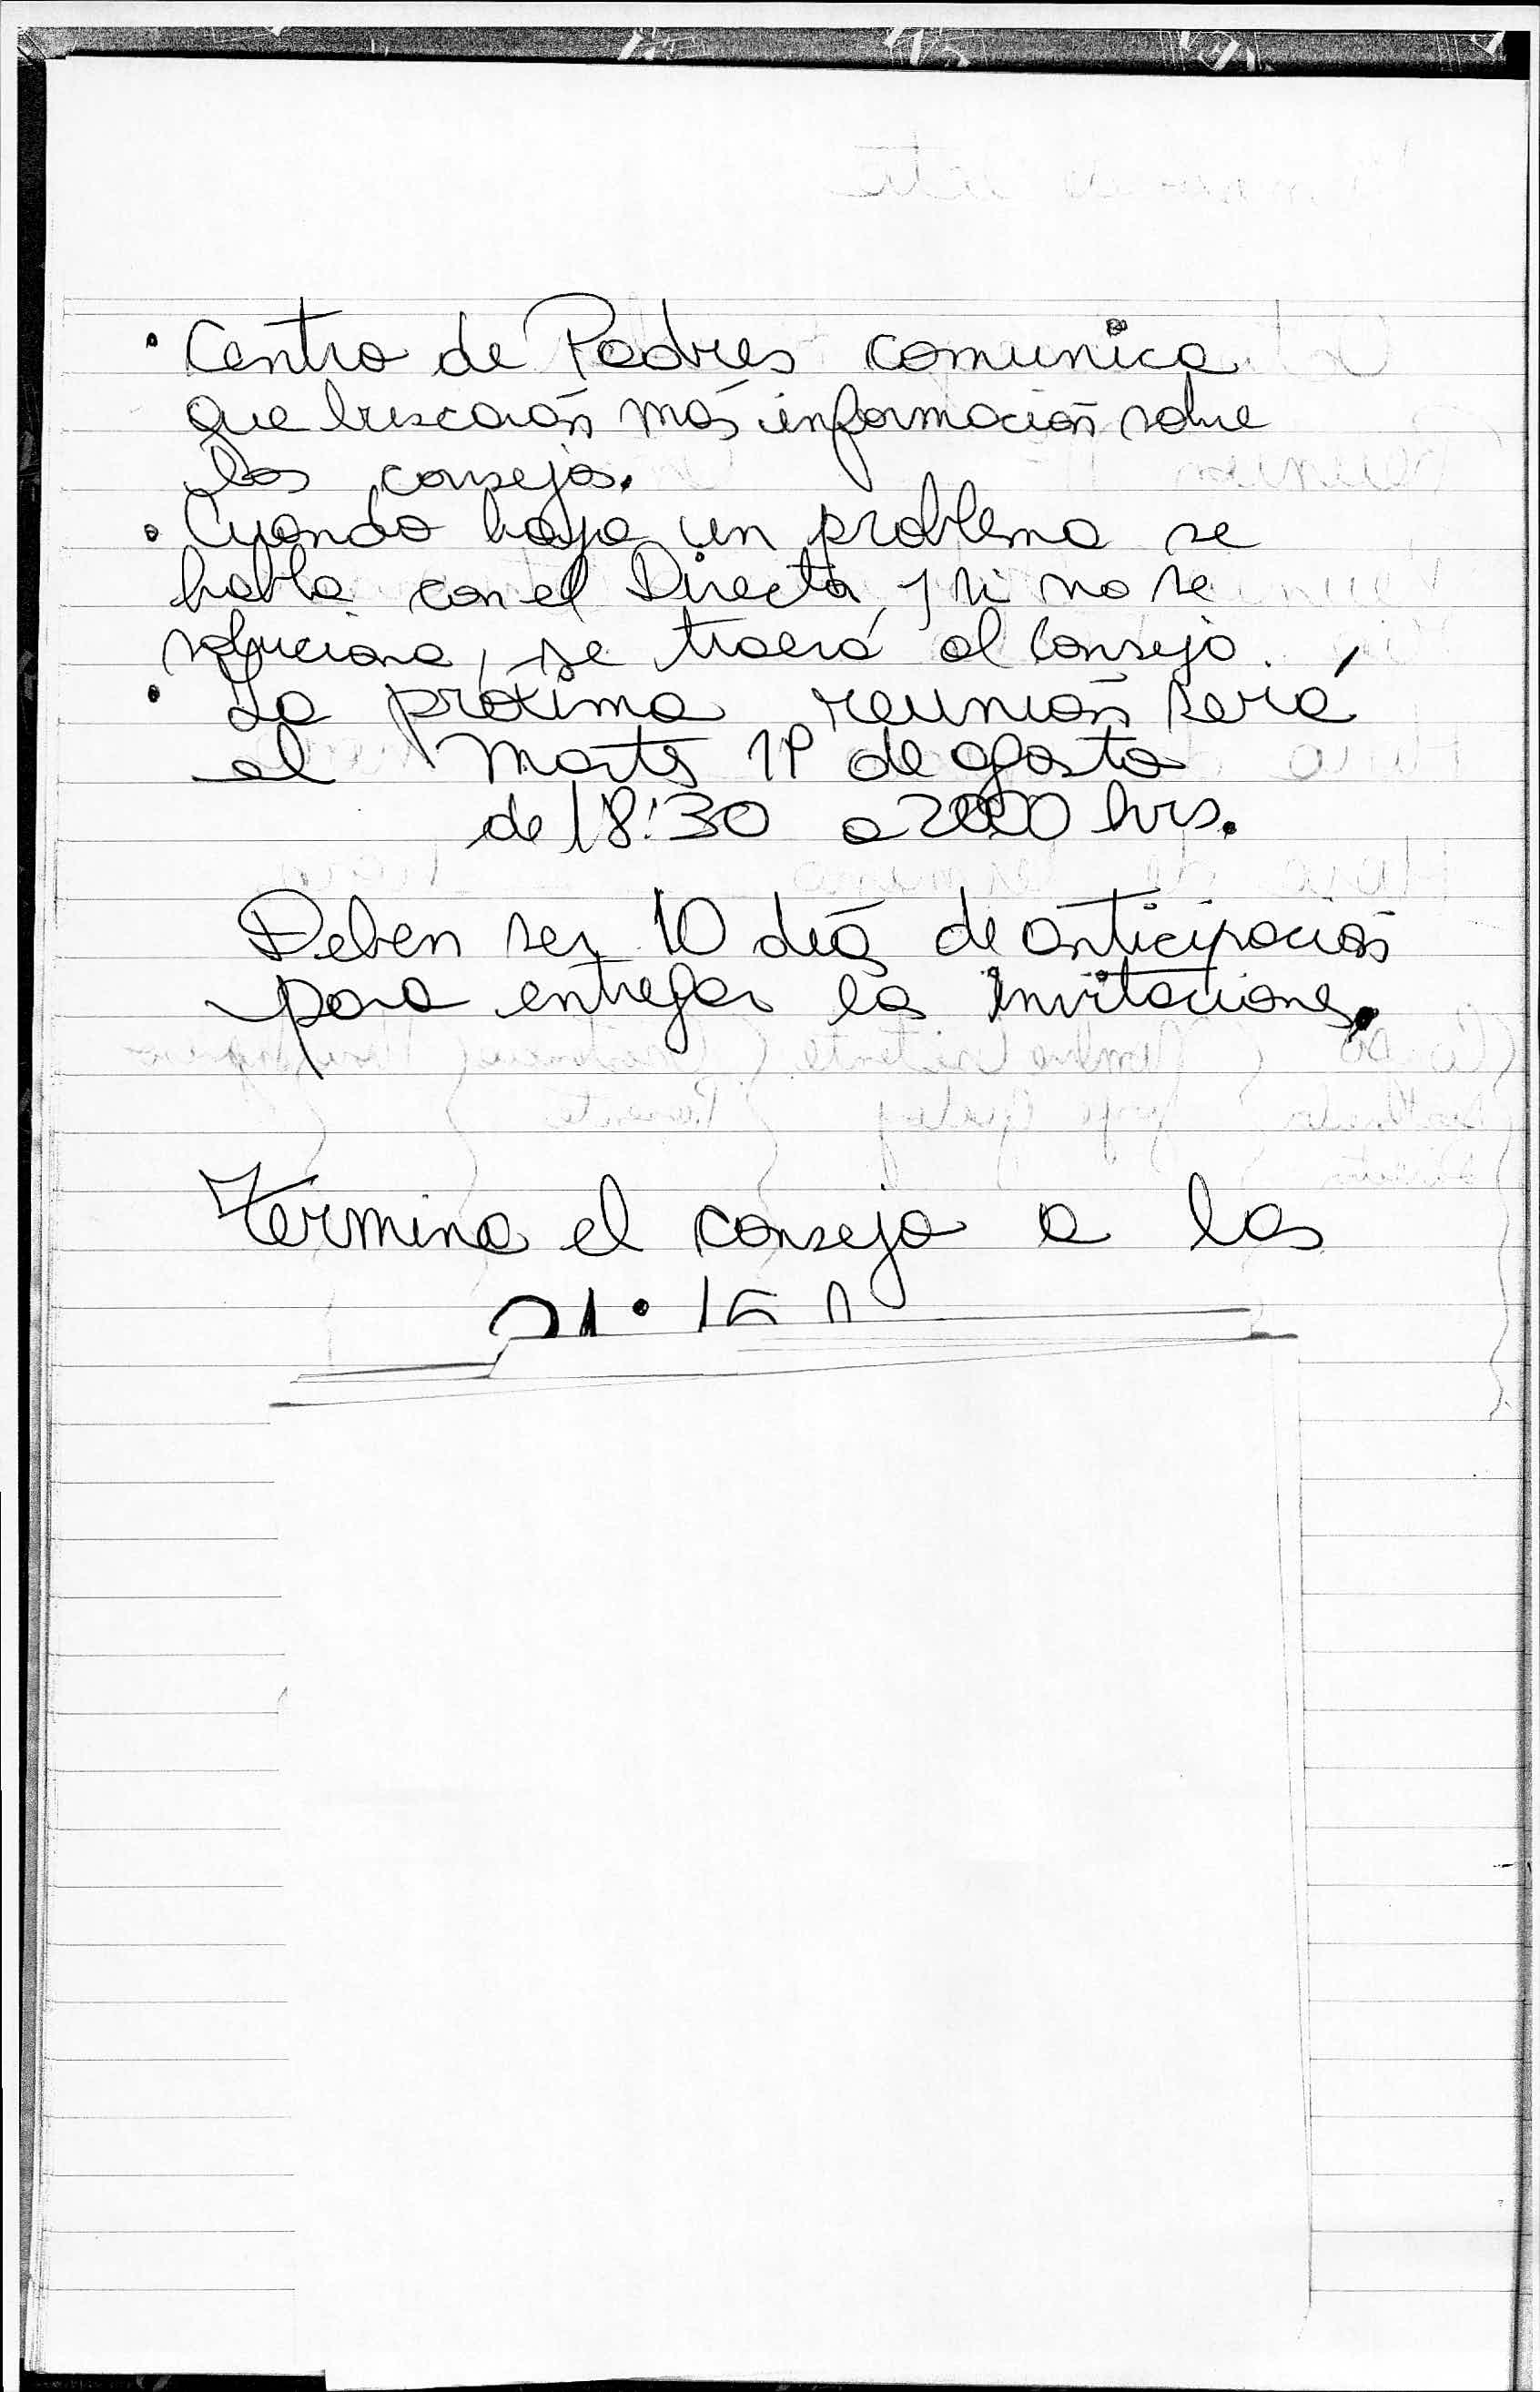 • Centro de Padres comunica
que buscarán más información sobre
los consejos.
• Cuando haya un problema se
habla con el Director, y si no se
soluciona, se traerá al Consejo.
• La próxima reunión será
el Martes 1º de agosto
de 18:30 a 20:00 hrs.
Deben ser 10 días de anticipación
para entregar las invitaciones.
Termina el consejo a las
21.15